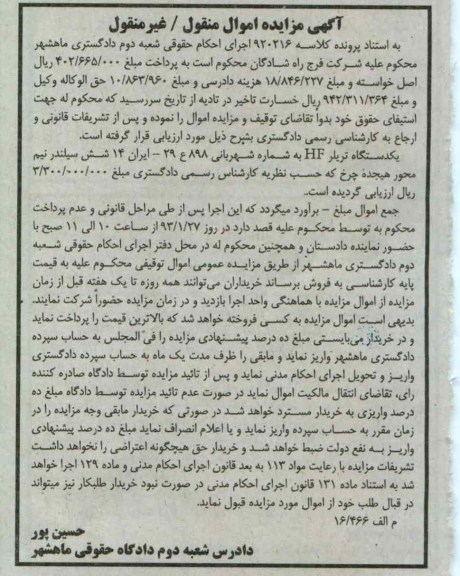 آگهی مزایده اموال منقول / غیرمنقول
به استناد پرونده کلاسه ۹۲۰۲۱۶ اجرای احکام حقوقی شعبه دوم دادگستری ماهشهر
محکوم علیه شرکت فرج راه شادگان محکوم است به پرداخت مبلغ ۴۰۲/۶۶۵/۰۰۰ ریال
اصل خواسته و مبلغ ۱۸/۸۴۶/۲۲۷ هزینه دادرسی و مبلغ ۱۰/۸۶۳/۹۶۰ حق الوکاله وکیل
و مبلغ ۹۴۲/۳۱۱/۳۶۴ ریال خسارت تاخیر در تادیه از تاریخ سررسید که محکوم له جهت
استیفای حقوق خود بدوآ تقاضای توقیف و مزایده اموال را نموده و پس از تشریفات قانونی و
ارجاع به کارشناسی رسمی دادگستری بشرح ذیل مورد ارزیابی قرار گرفته است.
یکدستگاه تریلر HF به شماره شهربانی ۸۹۸ ع ۲۹ - ایران ۱۴ شش سیلندر نیم
محور هیجده چرخ که حسب نظریه کارشناس رسمی دادگستری مبلغ ۳/۳۰۰/۰۰۰/۰۰۰
ریال ارزیابی گردیده است.
جمع اموال مبلغ - برآورد میگردد که این اجرا پس از طی مراحل قانونی و عدم پرداخت
محکوم به توسط محکوم علیه قصد دارد در روز ۹۳/۱/۲۷ از ساعت ۱۰ الی ۱۱ صبح با
حضور نماینده دادستان و همچنین محکوم له در محل دفتر اجرای احکام حقوقی شعبه
دوم دادگستری ماهشهر از طریق مزایده عمومی اموال توقیفی محکوم علیه به قیمت
پایه کارشناسی به فروش برساند خریداران می‌توانند همه روزه تا یک هفته قبل از زمان
مزایده از اموال مزایده با هماهنگی واحد اجرا بازدید و در زمان مزایده حضورآ شرکت نمایند.
بدیهی است اموال مزایده به کسی فروخته خواهد شد که بالاترین قیمت را پرداخت نماید
و در خریدار می‌بایستی مبلغ ده درصد پیشنهادی مزایده را فی المجلس به حساب سپرده
دادگستری ماهشهر واریز نماید و مابقی را ظرف مدت یک ماه به حساب سپرده دادگستری
واریز و تحویل اجرای احکام مدنی نماید و پس از تائید مزایده توسط دادگاه صادره کننده
رای، تقاضای انتقال مالکیت اموال نماید در صورت عدم تائید مزایده توسط دادگاه مبلغ ده
درصد واریزی به خریدار مسترد خواهد شد در صورتی که خریدار مابقی وجه مزایده را در
زمان مقرر به حساب سپرده واریز نماید و یا اعلام انصراف نماید مبلغ ده درصد پیشنهادی
واریز به نفع دولت ضبط خواهد شد و خریدار حق هیچگونه اعتراضی را نخواهد داشت
تشریفات مزایده با رعایت مواد ۱۱۳ به بعد قانون اجرای احکام مدنی و ماده ۱۲۹ اجرا خواهد
شد به استناد ماده ۱۳۱ قانون اجرای احکام مدنی در صورت نبود خریدار طلبکار نیز میتواند
در قبال طلب خود از اموال مورد مزایده قبول نماید.
م الف ۱۶/۴۶۶
حسین پور
دادرس شعبه دوم دادگاه حقوقی ماهشهر